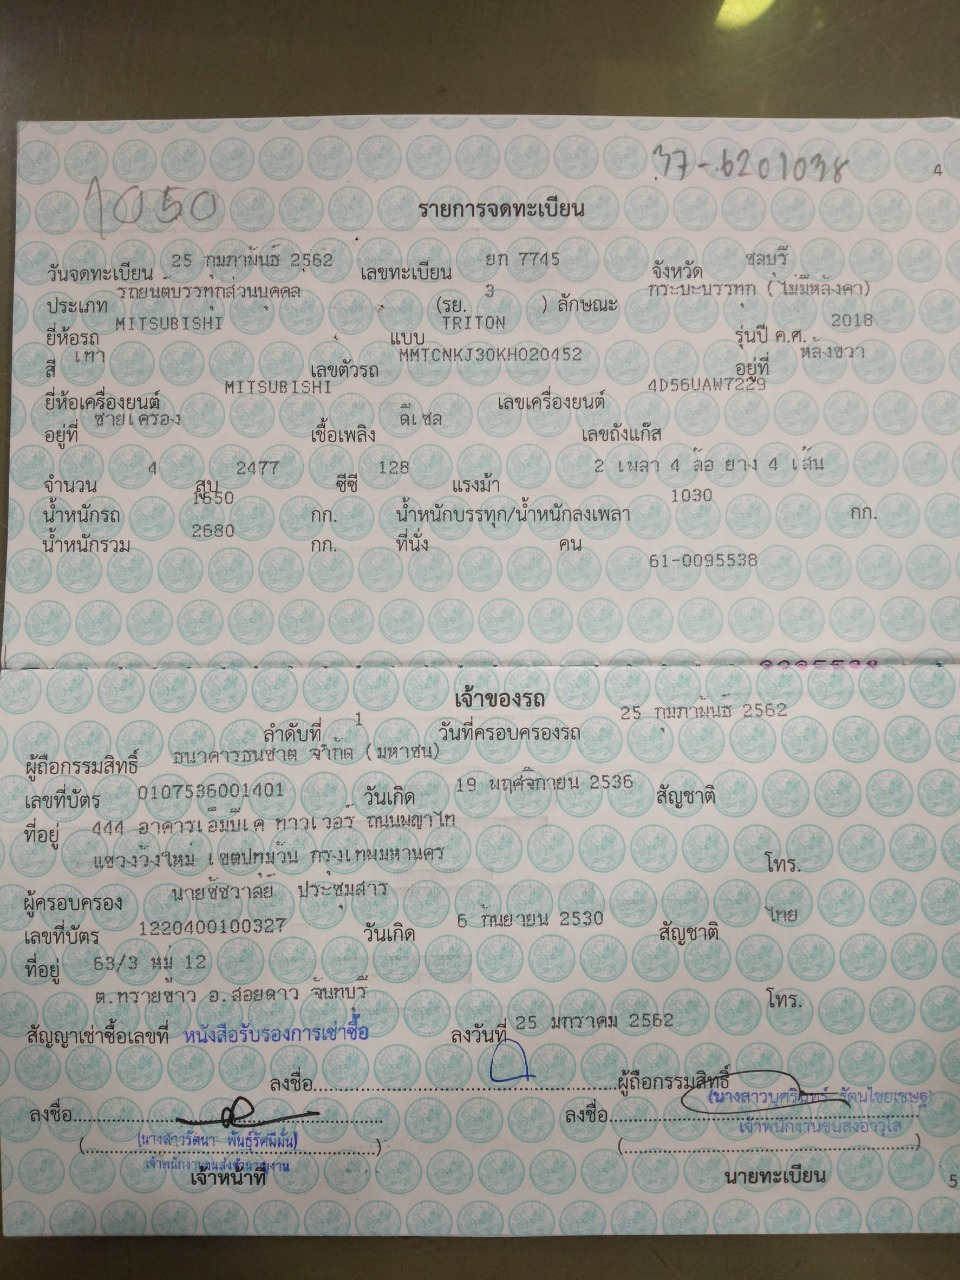 37-6201038
4
1050
รายการจดทะเบียน
วันจดทะเบียน 25 กุมภาพันธ์ 2562 เลขทะเบียน ยก 7745 จังหวัด ชลบุรี
ประเภท รถยนต์บรรทุกส่วนบุคคล (รย. 3 ) ลักษณะ กระบะบรรทุก (ไม่มีหลังคา)
ยี่ห้อรถ MITSUBISHI แบบ TRITON รุ่นปี ค.ศ. 2018
สี เทา เลขตัวรถ MMTCNKJ30KH020452 อยู่ที่ หลังขวา
ยี่ห้อเครื่องยนต์ MITSUBISHI เลขเครื่องยนต์ 4D56UAW7229
อยู่ที่ ซ้ายเครื่อง เชื้อเพลิง ดีเซล เลขถังแก๊ส
จำนวน 4 สูบ 2477 ซีซี 128 แรงม้า 2 เพลา 4 ล้อ ยาง 4 เส้น
น้ำหนักรถ 1650 กก. น้ำหนักบรรทุก/น้ำหนักลงเพลา 1030 กก.
น้ำหนักรวม 2680 กก. ที่นั่ง คน
61-0095538
เจ้าของรถ
ลำดับที่ 1 วันที่ครอบครองรถ 25 กุมภาพันธ์ 2562
ผู้ถือกรรมสิทธิ์ ธนาคารธนชาต จำกัด (มหาชน)
เลขที่บัตร 0107536001401 วันเกิด 19 พฤศจิกายน 2536 สัญชาติ
ที่อยู่ 444 อาคารเอ็มบีเค ทาวเวอร์ ถนนพญาไท
แขวงวังใหม่ เขตปทุมวัน กรุงเทพมหานคร โทร.
ผู้ครอบครอง นายชัชวาลย์ ประชุมสาร
เลขที่บัตร 1220400100327 วันเกิด 6 กันยายน 2530 สัญชาติ ไทย
ที่อยู่ 63/3 หมู่ 12
ต.ทรายขาว อ.สอยดาว จันทบุรี โทร.
สัญญาเช่าซื้อเลขที่ หนังสือรับรองการเช่าซื้อ ลงวันที่ 25 มกราคม 2562
ลงชื่อ ผู้ถือกรรมสิทธิ์
ลงชื่อ ลงชื่อ
(นางสาวรัตนา
เจ้าพนักงานขนส่งชำนาญงาน เจ้าพนักงานขนส่งอาวุโส
เจ้าหน้าที่ นายทะเบียน
5